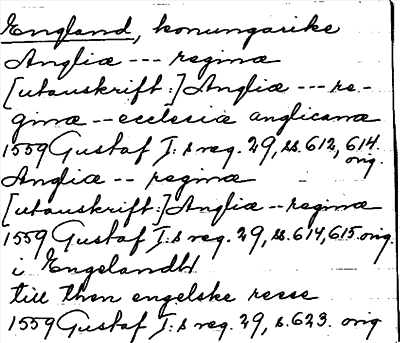 England, konungarike
Angliæ --- reginæ
[utanskrift:] Angliæ --- re-
ginæ -- ecclesiæ anglicanæ
1559 Gustaf I:s reg. 29, ss. 612, 614.
orig.
Angliæ -- reginæ
[utanskrift:] Angliæ -- reginæ
1559 Gustaf I:s reg. 29, ss. 614, 615. orig.
i Engelandh
till then engelske resse
1559 Gustaf I:s reg. 29, s. 623. orig